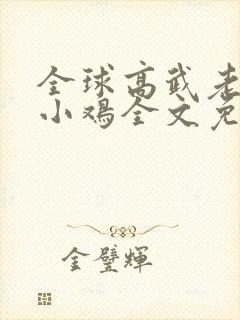 全球高武老
小鸡全文免
金璧輝